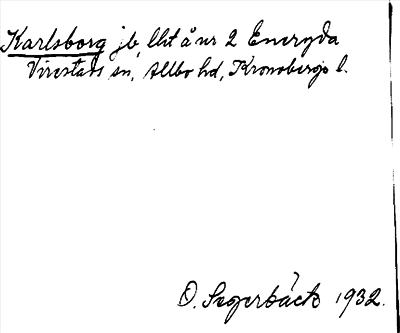 Karlsborg jb, lht å nr 2 Eneryda
Virestads sn, Allbo hd, Kronobergs l.
O. Segerbäck 1932.